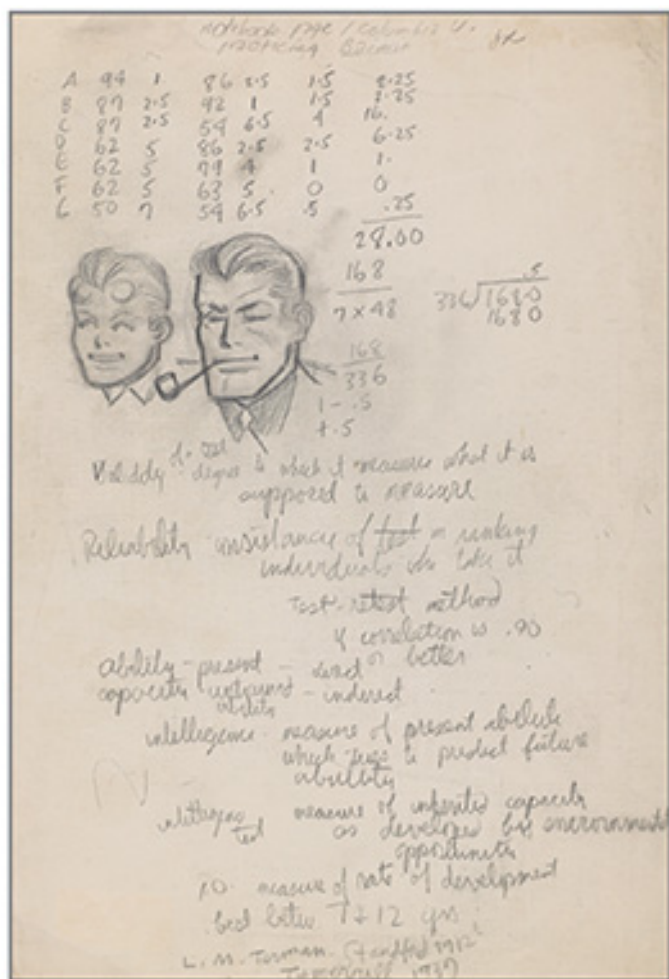 notebook page / Columbia U.
practicing
A 94 1 86 2.5 1.5 2.25
B 87 2.5 92 1 1.5 2.25
C 87 2.5 54 6.5 4 16.
D 62 5 86 2.5 2.5 6.25
E 62 5 79 4 1 1.
F 62 5 63 5 0 0
G 50 7 54 6.5 .5 .25
28.00
168
7 x 48
.5
336 168.0
168 0
168
336
1 - .5
+ .5
Validity of a test degree to which it measures what it is
supposed to measure
Reliability consistancy of test in ranking
individuals who take it
Test-retest method
if correlation is .90
or better
ability - present - direct
capacity - indirect
ability
intelligence - measure of present ability
which to predict future
ability
test measure of inherited capacity
as developed by environmental
opportunities
measure of rate of development
7 + 12 yrs
L. M. Terman - 1912
1937